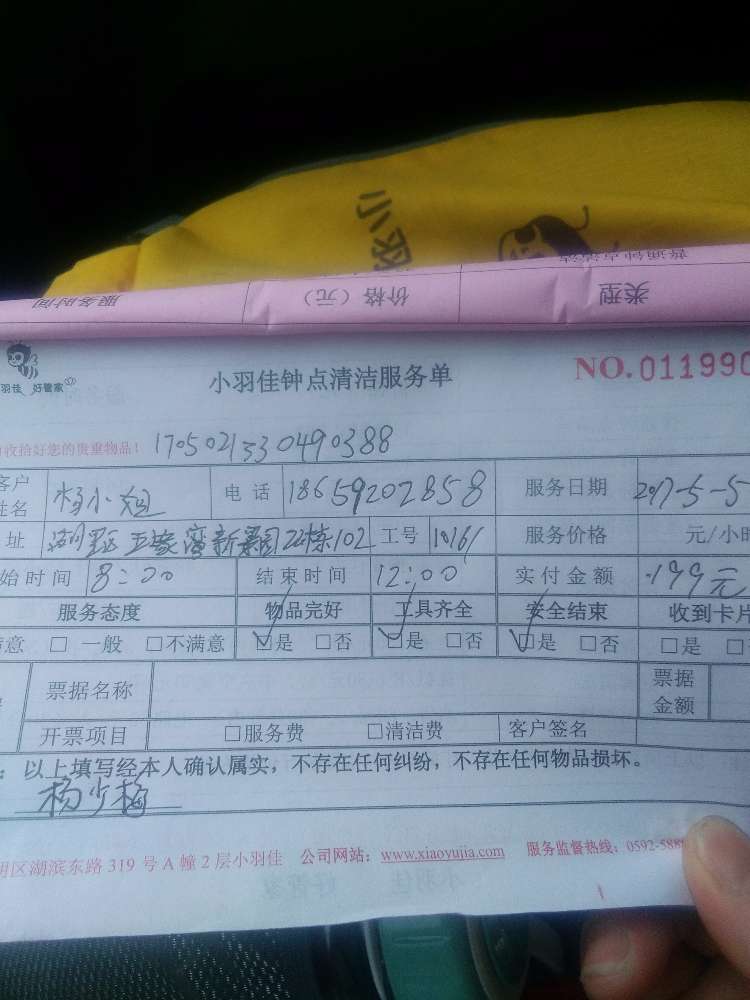 小羽
服务时间 价格（元） 类型
羽佳 好管家
小羽佳钟点清洁服务单 NO.011990
收拾好您的贵重物品！ 1705021330490388
客户姓名 杨小姐 电话 18659202858 服务日期 2017-5-5
址 湖里区 新景园22栋102 工号 10161 服务价格 元/小时
始时间 8:00 结束时间 12:00 实付金额 199元
服务态度 物品完好 工具齐全 安全结束 收到卡片
意 □ 一般 □不满意 ☑是 □否 ☑是 □否 ☑是 □否 □是 □
票据名称 票据金额
开票项目 □服务费 □清洁费 客户签名
：以上填写经本人确认属实，不存在任何纠纷，不存在任何物品损坏。
杨少梅
明区湖滨东路 319 号 A 幢 2 层小羽佳 公司网站：www.xiaoyujia.com 服务监督热线：0592-588